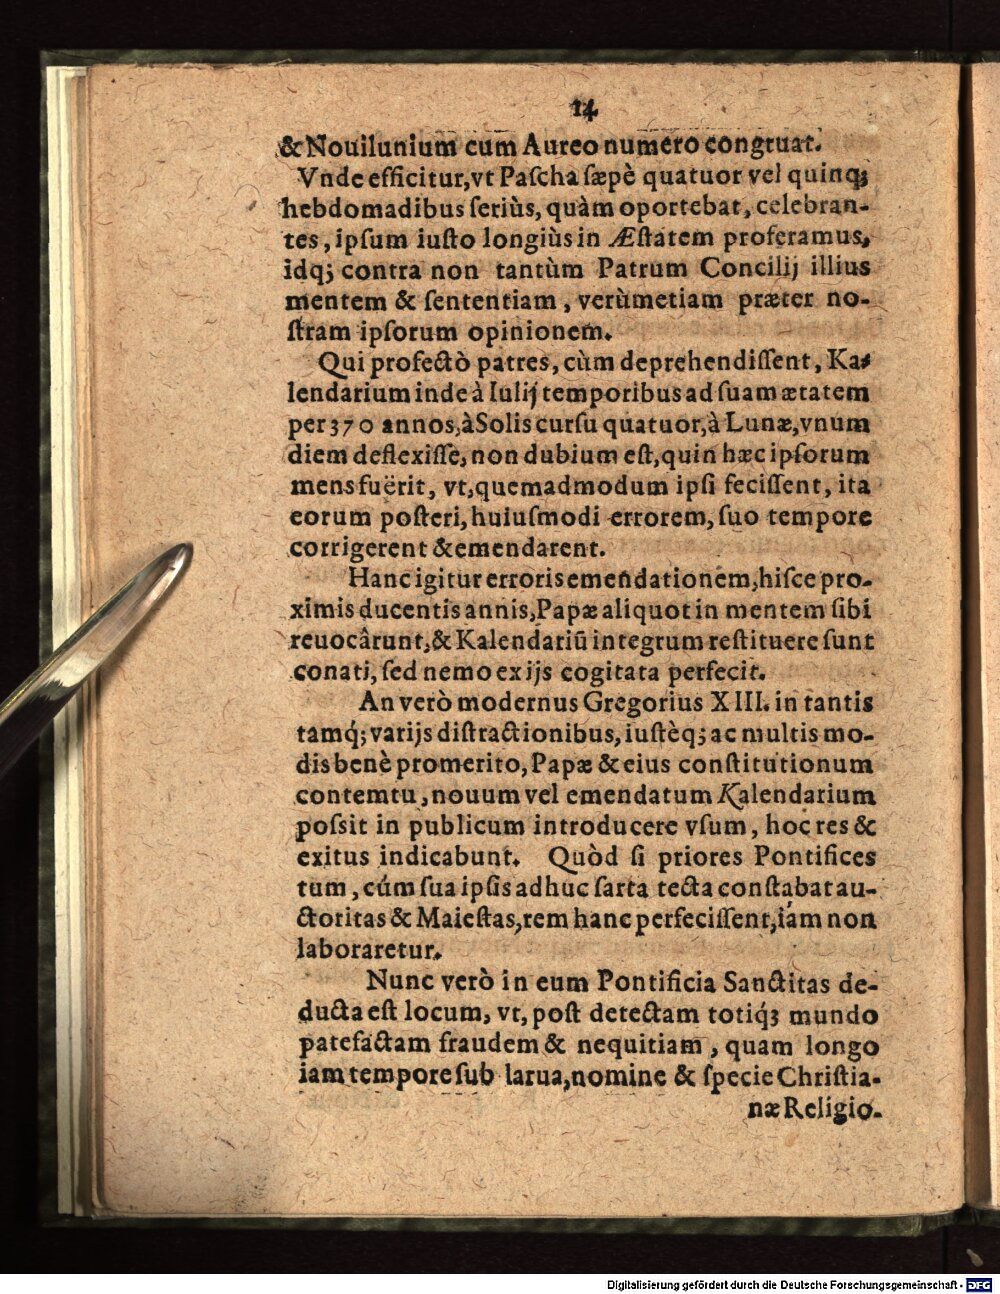 14
& Nouilunium cum Aureo numero congruat.
Vnde efficitur, vt Paſcha ſæpè quatuor vel quinq;
hebdomadibus ſeriùs, quàm oportebat, celebran-
tes, ipſum iuſto longiùs in Æſtatem proferamus,
idq; contra non tantùm Patrum Concilij illius
mentem & ſententiam, verùm etiam præter no-
ſtram ipſorum opinionem.
Qui profectò patres, cùm deprehendiſſent, Ka-
lendarium inde à Iulij temporibus ad ſuam ætatem
per 370 annos, à Solis curſu quatuor, à Lunæ, vnum
diem deflexiſſe, non dubium eſt, quin hæc ipſorum
mens fuërit, vt, quemadmodum ipſi feciſſent, ita
eorum poſteri, huiuſmodi errorem, ſuo tempore
corrigerent & emendarent.
Hanc igitur erroris emendationem, hiſce pro-
ximis ducentis annis, Papæ aliquot in mentem ſibi
reuocârunt, & Kalendariū integrum reſtituere ſunt
conati, ſed nemo ex ijs cogitata perfecit.
An verò modernus Gregorius XIII. in tantis
tamq́; varijs diſtractionibus, iuſtèq; ac multis mo-
dis benè promerito, Papæ & eius conſtitutionum
contemtu, nouum vel emendatum Kalendarium
poſsit in publicum introducere vſum, hoc res &
exitus indicabunt. Quòd ſi priores Pontifices
tum, cúm ſua ipſis adhuc ſarta tecta conſtabat au-
ctoritas & Maieſtas, rem hanc perfeciſſent, iám non
laboraretur.
Nunc verò in eum Pontificia Sanctitas de-
ducta eſt locum, vt, poſt detectam totiq́; mundo
patefactam fraudem & nequitiam, quam longo
iam tempore ſub larua, nomine & ſpecie Chriſtia-
næ Religio-
Digitalisierung gefördert durch die Deutsche Forschungsgemeinschaft - DFG